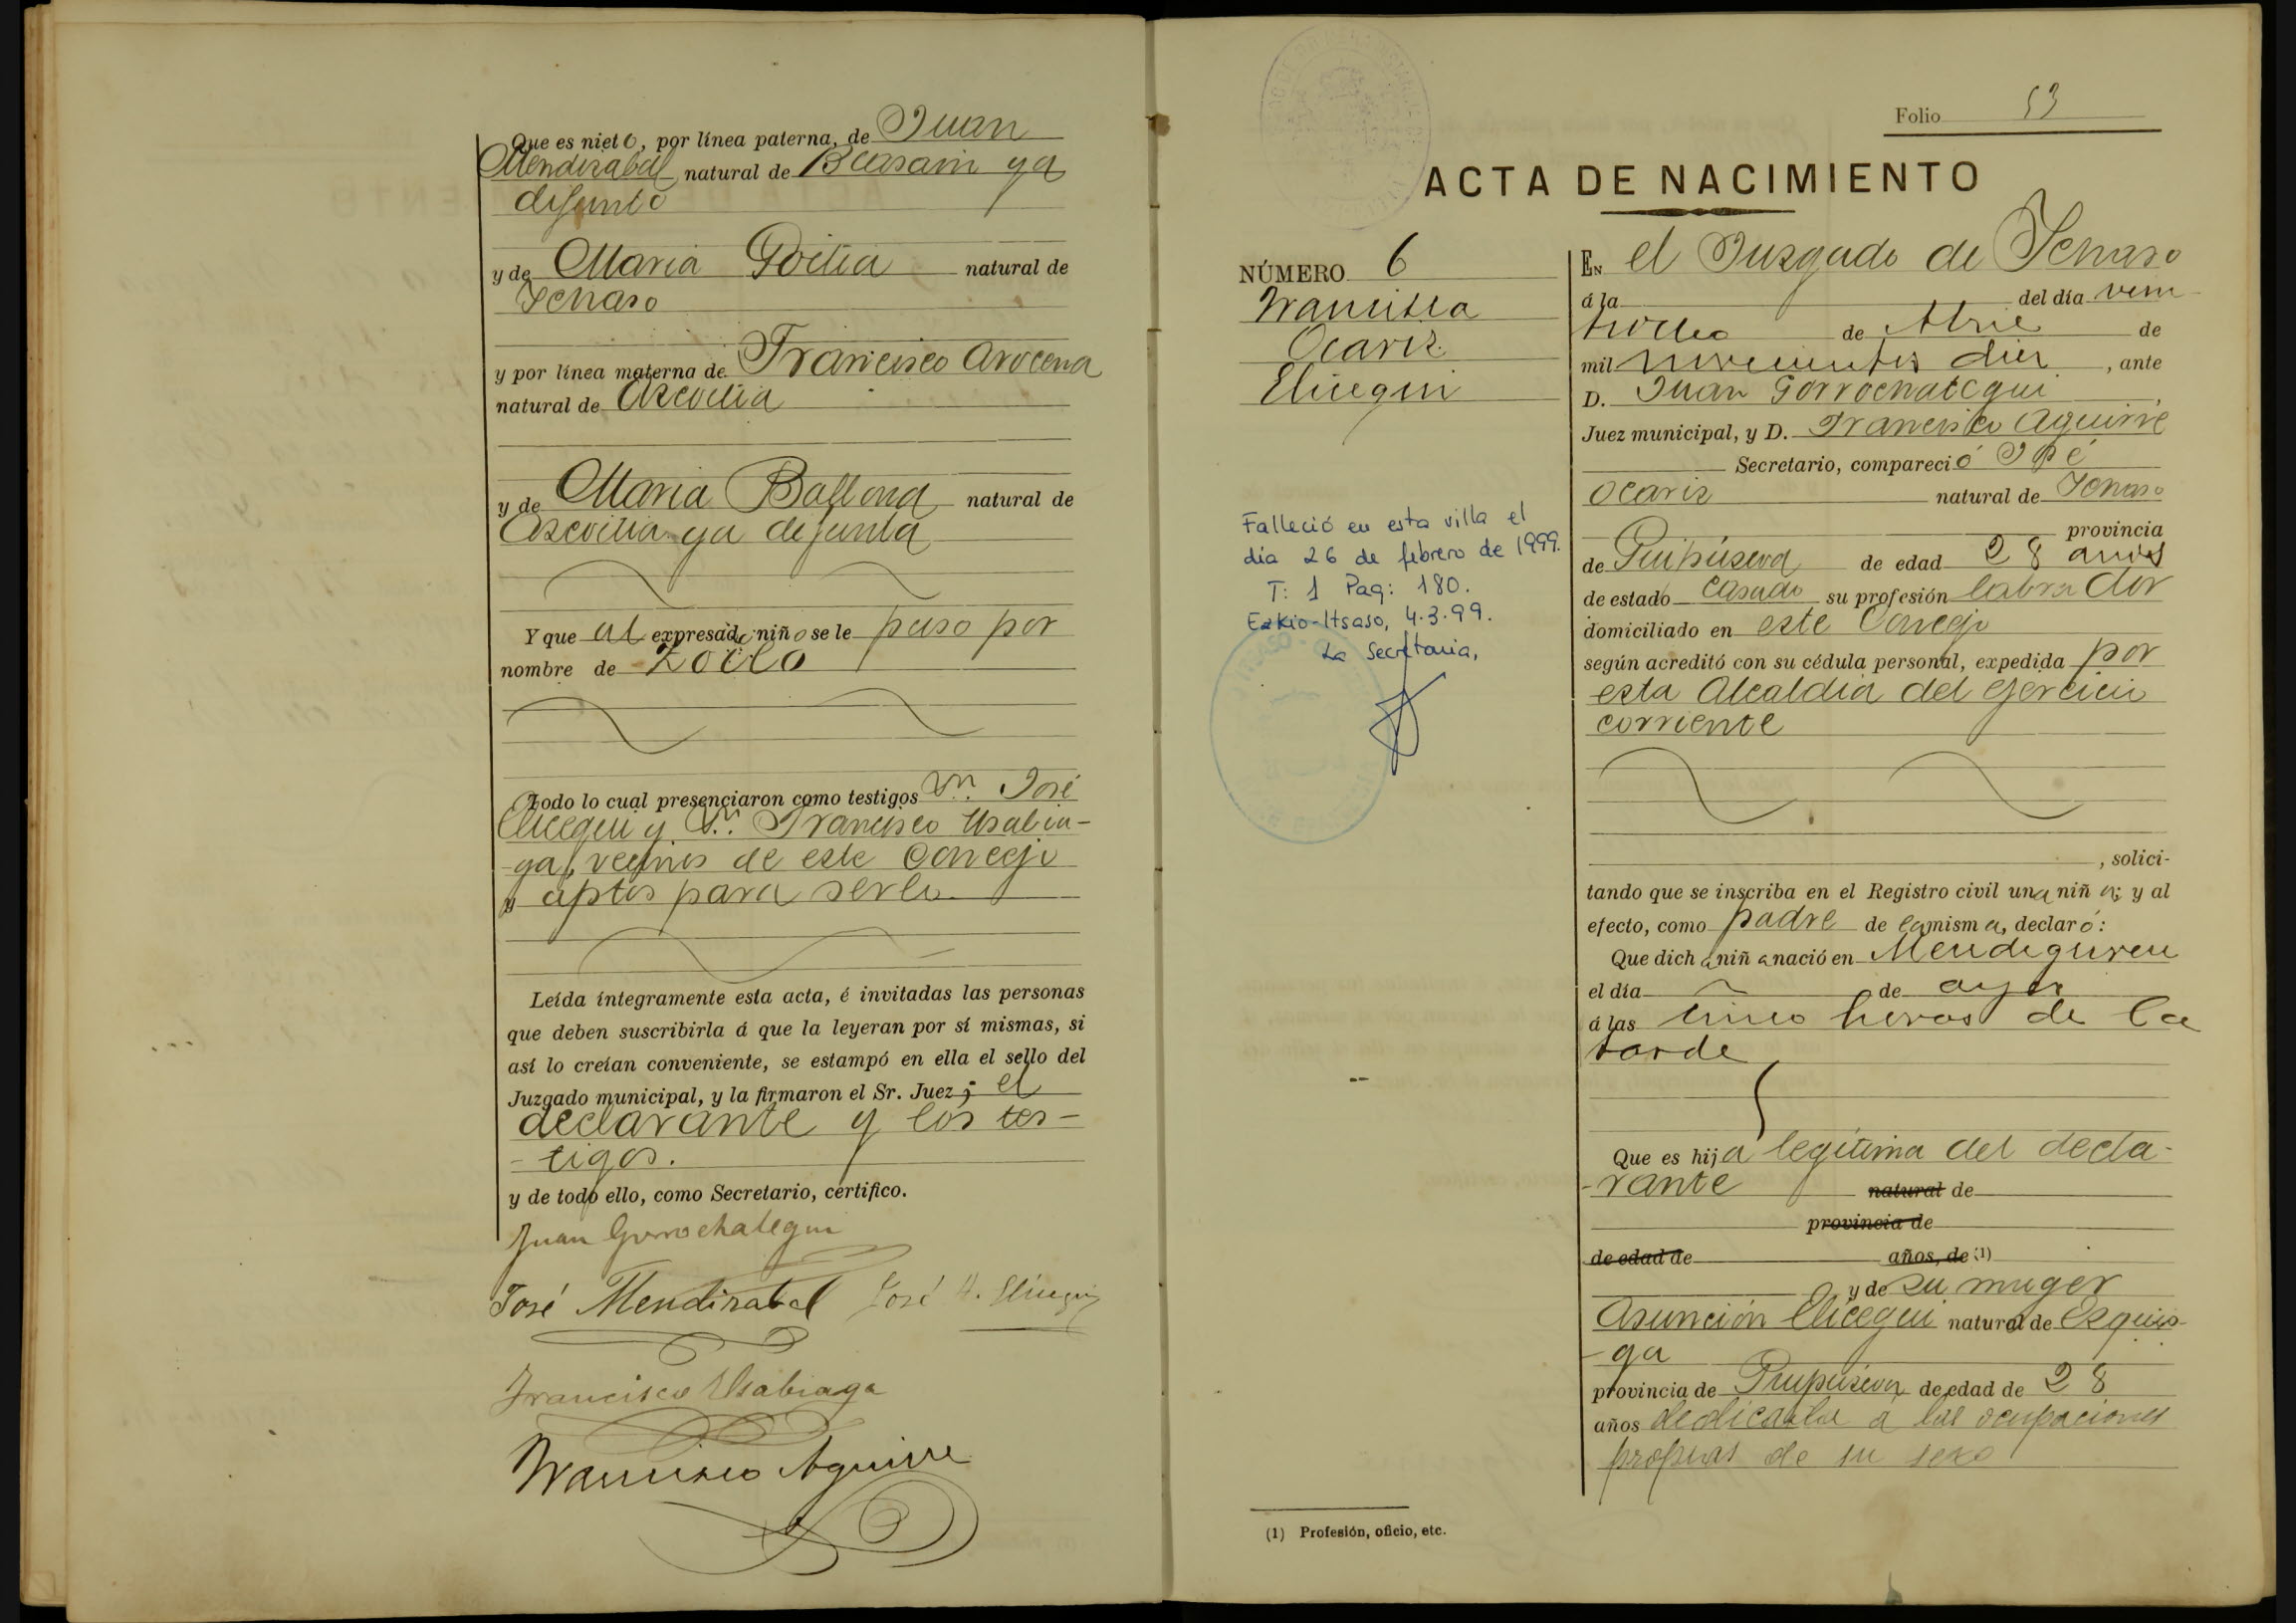 Que es nieto, por línea paterna, de Juan
Mendizabal natural de Beasain ya
difunto
y de Maria Goitia natural de
Ichaso
y por línea materna de Francisco Arocena
natural de Azcoitia
y de Maria Ballona natural de
Azcoitia ya difunta
Y que al expresado niño se le puso por
nombre de Zoilo
Todo lo cual presenciaron como testigos Dn. José
Elicegui y Dn. Francisco Usabia-
-ga, vecinos de este Concejo
y aptos para serlo.
Leída íntegramente esta acta, é invitadas las personas
que deben suscribirla á que la leyeran por sí mismas, si
así lo creían conveniente, se estampó en ella el sello del
Juzgado municipal, y la firmaron el Sr. Juez; el
declarante y los tes-
-tigos.
y de todo ello, como Secretario, certifico.
Juan Gorrochategui
José Mendizabal José A. Elicegui
Francisco Usabiaga
Francisco Aguirre
Folio 53
ACTA DE NACIMIENTO
NÚMERO 6
Francisca
Ocariz
Elicegui
Falleció en esta villa el
día 26 de febrero de 1999.
T: 1 Pag: 180.
Ezkio-Itsaso, 4.3.99.
La Secretaria,
EN el Juzgado de Ichaso
á la del día vein-
tiocho de Abril de
mil novecientos diez, ante
D. Juan Gorrochategui,
Juez municipal, y D. Francisco Aguirre
Secretario, compareció José
Ocariz natural de Ichaso
provincia
de Guipúzcoa de edad 28 años
de estado casado su profesión labrador
domiciliado en este Concejo
según acreditó con su cédula personal, expedida por
esta Alcaldia del ejercicio
corriente
, solici-
tando que se inscriba en el Registro civil una niña; y al
efecto, como padre de la misma, declaró:
Que dicha niña nació en Mendiguren
el día de ayer
á las cinco horas de la
tarde
Que es hija legítima del decla-
-rante natural de
provincia de
de edad de años, de (1)
y de su muger
Asunción Elicegui natural de Ezquio-
-ga
provincia de Guipúzcoa de edad de 28
años dedicada á las ocupaciones
propias de su sexo
(1) Profesión, oficio, etc.